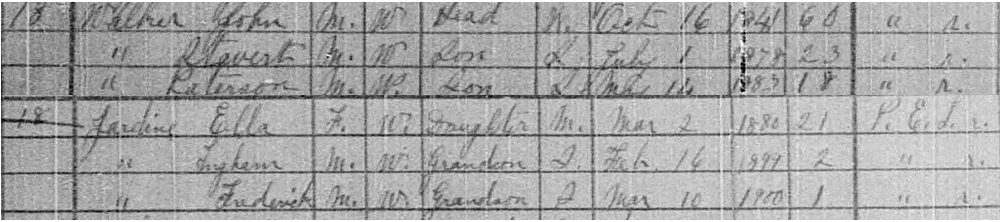 18 Walker John M. W. Head W. Oct 16 1841 60 " r.
" Stavert M. W Son S. July 1 1878 23 " r.
" Paterson M. W. Son S May 14 1883 18 " r.
18 Jardine Ella F. W. Daughter M. Mar 2 1880 21 P. E. I. r.
" Ingham M. W. Grandson S. Feb 16 1899 2 " r.
" Frederick M. W. Grandson S Mar 10 1900 1 " r.